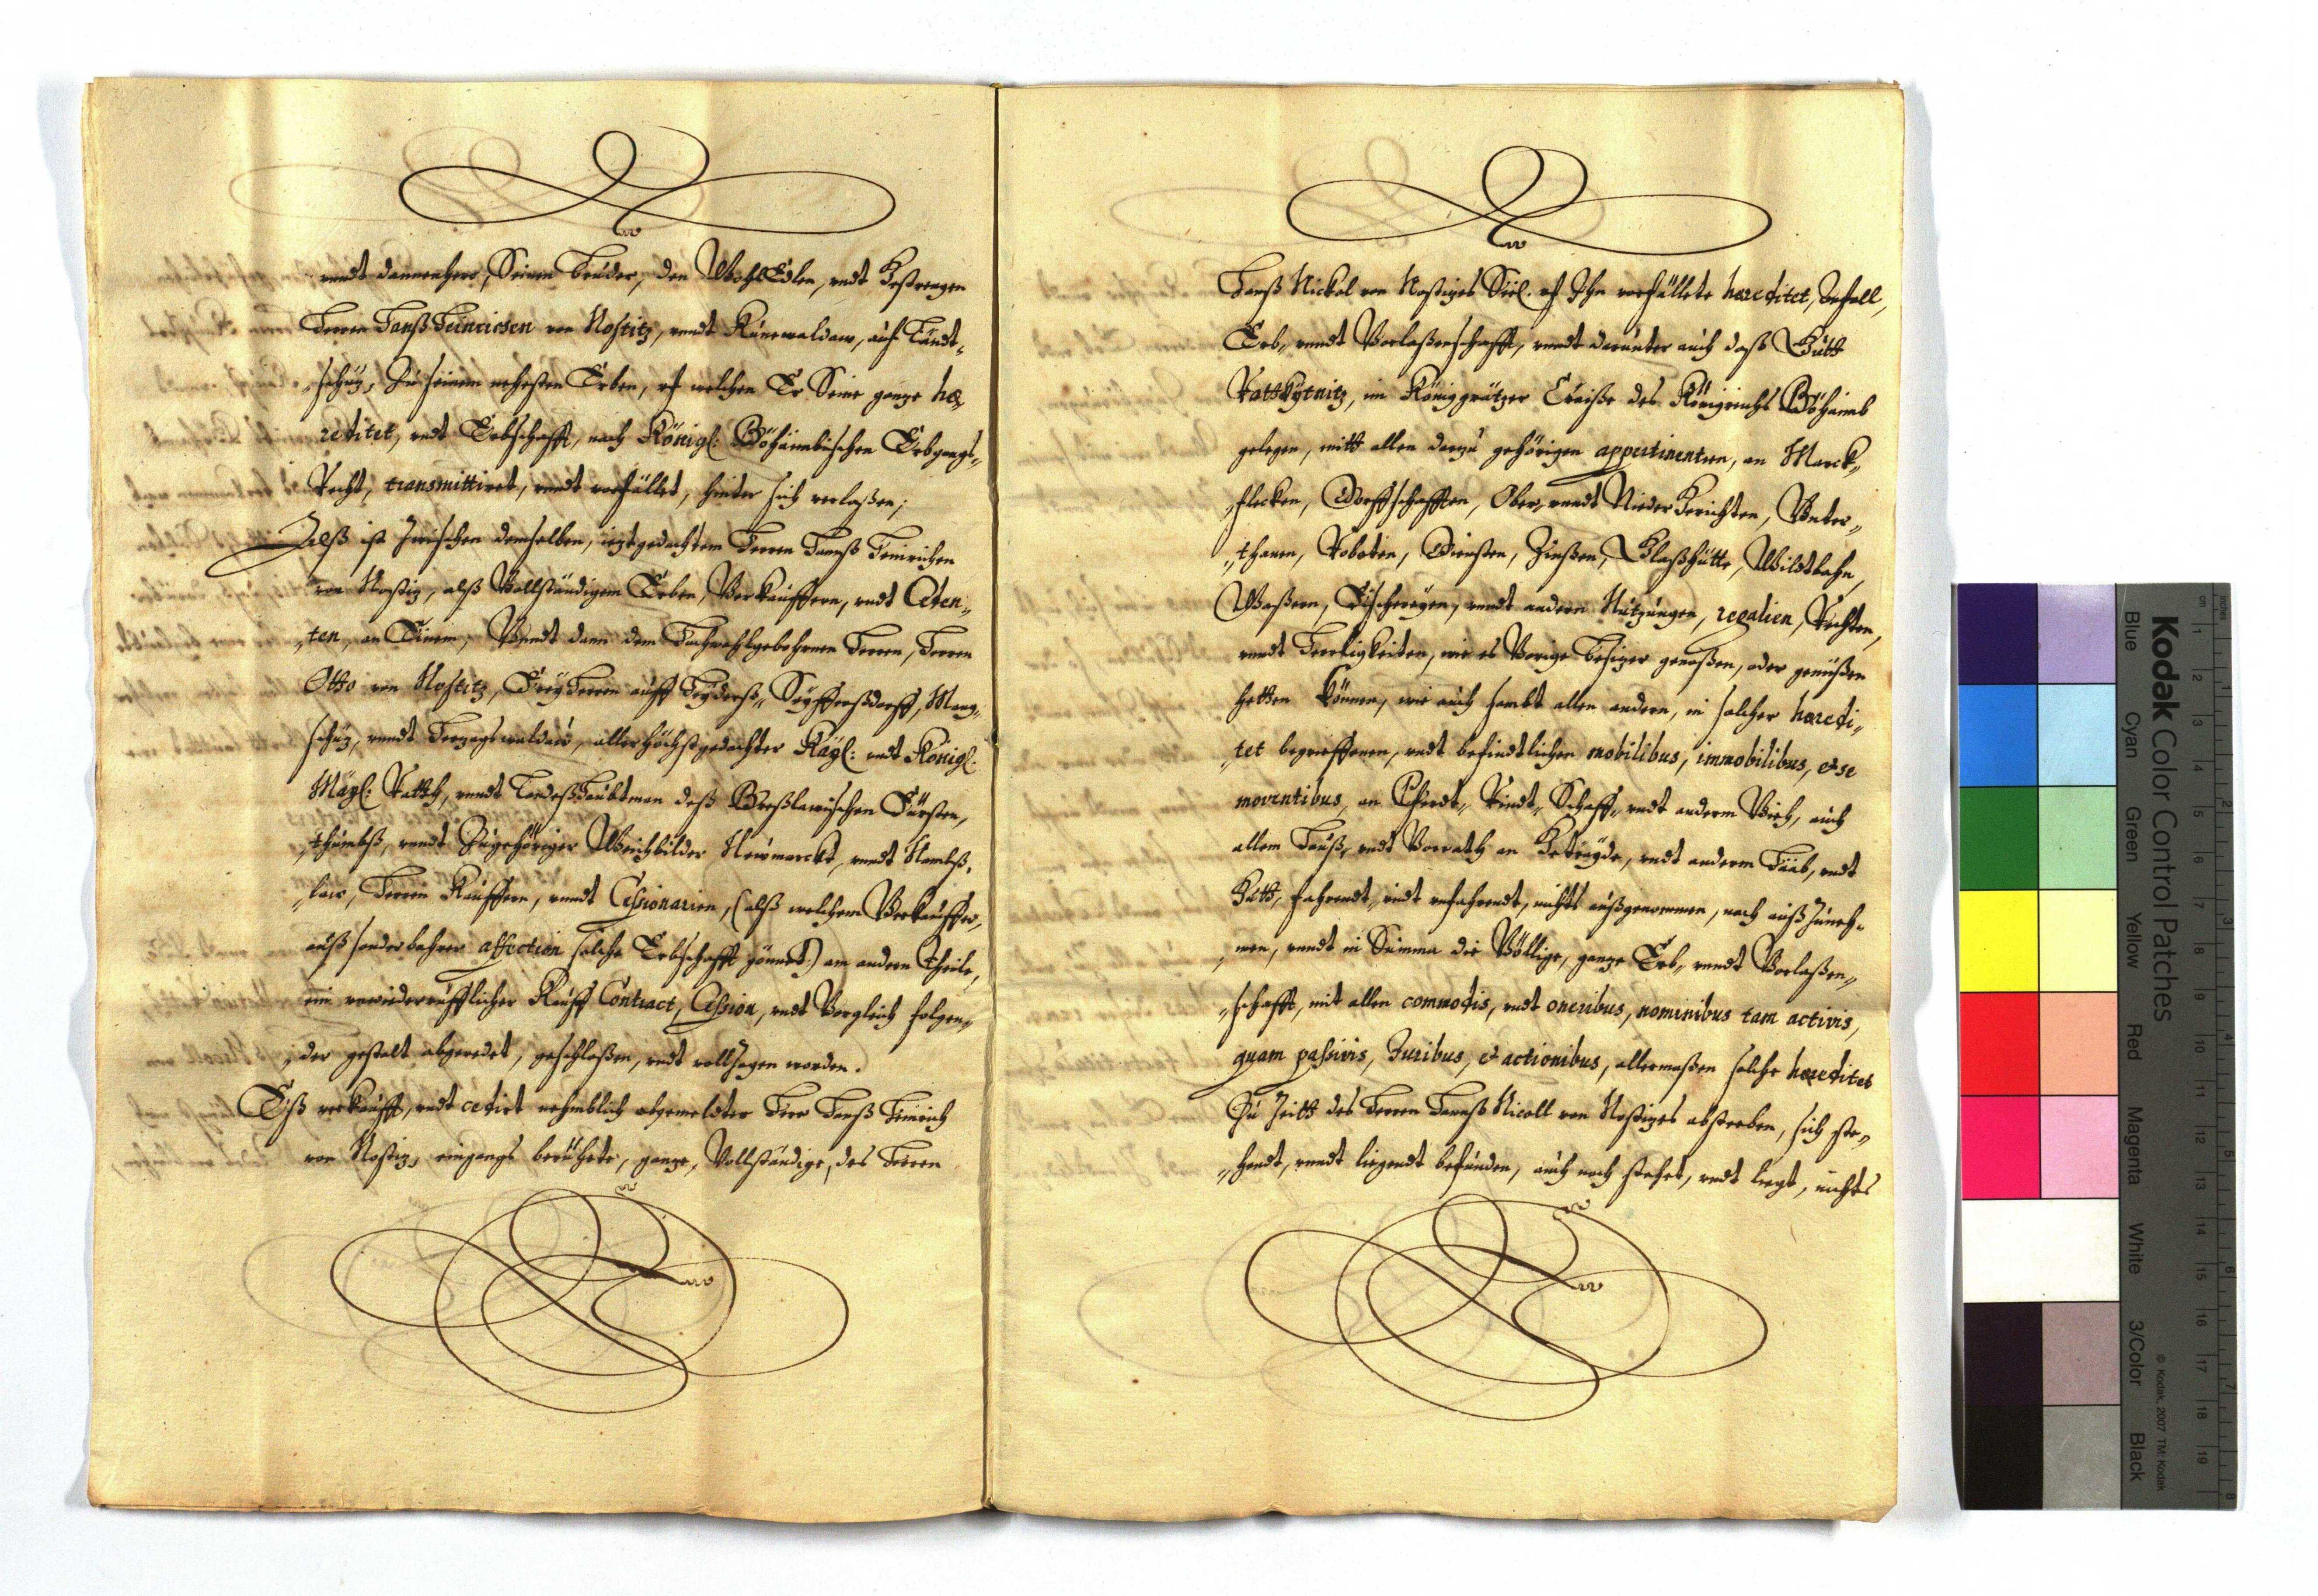 vndt dannenhero, Seinen bruder, den WohlEdlen, vndt Gestrengen
Herren Hanß Heinrichen von Nostitz, vndt Kunewaldaw, auf
schütz, Zu seinem nehesten Erben, vf welchen Er Seine gantze hæ,
reditet, vndt Erbschafft, nach Königl: Böhaimbischen Erbgangs„
Recht, transmittiret, vndt verfället, hinter sich verlaßen;
Alß ist Zwischen demselben, ietztgedachtem Herren Hannß Heinrichen
von Nostitz, alß Vollständigem Erben, Verkäuffern, vndt Ceden„
„ten, an Einem, Vndt dann dem Hochwohlgebohrnen Herren, Herren
Otto von Nostitz, FreyHerren auff Seyfferßdorff, Mang„
schütz, vndt Hertzogswaldaw, allerhöchstgedachter Kaÿ: vndt Königl.
Maÿ: Rath, vndt LandeßHaubtman deß Breßlawischen Fürsten„
„thumbß, vndt Zugehöriger Weichbilder Newmarckt, vndt Namß„
„law, Herren Käuffern, vndt Cessionarien, (alß welchem Verkäuffer,
auß sonderbahrer affection solche Erbschafft gönnet) am andern Theile,
ein vnwiederrufflicher Kauff Contract, Cession, vndt Vergleich folgen„
„der gestalt abgeredet, geschloßen, vndt vollzogen worden.
Eß verkaufft, vndt cedirt nehmblich obgemeldter Herr Hanß Heinrich
von Nostitz, eingangs berührte, gantze, Vollständige, des Herren
Hanß Nickel von Nostitzes Seel. vf Ihn verfällete hæreditet, Anfall,
Erb„ vndt Verlaßenschafft, vndt darunter auch daß Gutt
Rokitnitz, im Königgrätzer Craiße des Königreichs Böhaimb
gelegen, mitt allen darzu gehörigen appertinentien, an Marck„
„flecken, Dorffschafften, Ober„ vndt NiederGerichten, Vnter„
„thanen, Roboten, Diensten, Zinßen, Glaßhütte, Wildtbahn,
Waßern, Fischereyen, vndt andern Nutzungen, regalien, Rechten,
vndt Herrligkeiten, wie es Vorige besitzer genoßen, oder genüßen
hetten können, wie auch sambt allen andern, in solcher hæredi„
„tet begrieffenen, vndt befindtlichen mobilibus, immobilibus, et se
moventibus, an Pferdt„ Rindt„ Schaff„ vndt anderm Vieh, auch
allem Hauß„ vndt Vorrath an Getreyde, vndt anderm Haab, vndt
Gutt, fahrendt, vndt vnfahrendt, nichts außgenommen, noch außzuneh„
„men, vndt in Summa die Völlige, gantze Erb„ vndt Verlaßen„
„schafft, mit allen commodis, vndt oneribus, nominibus tam activis,
quam passivis, Juribus, et actionibus, allermaßen solche hæreditet
Zu Zeitt des Herren Hannß Nicoll von Nostitzes absterben, sich ste„
„hendt, vndt liegendt befunden, auch noch stehet, vndt liegt, nichts